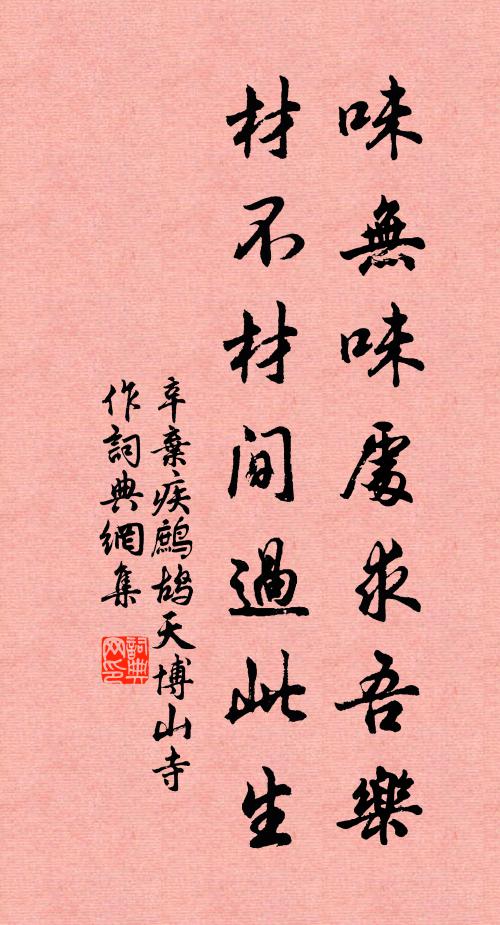 味無味處求吾樂
材不材間過此生
辛棄疾鷓鴣天博山寺
作詞典網集
詞典網印